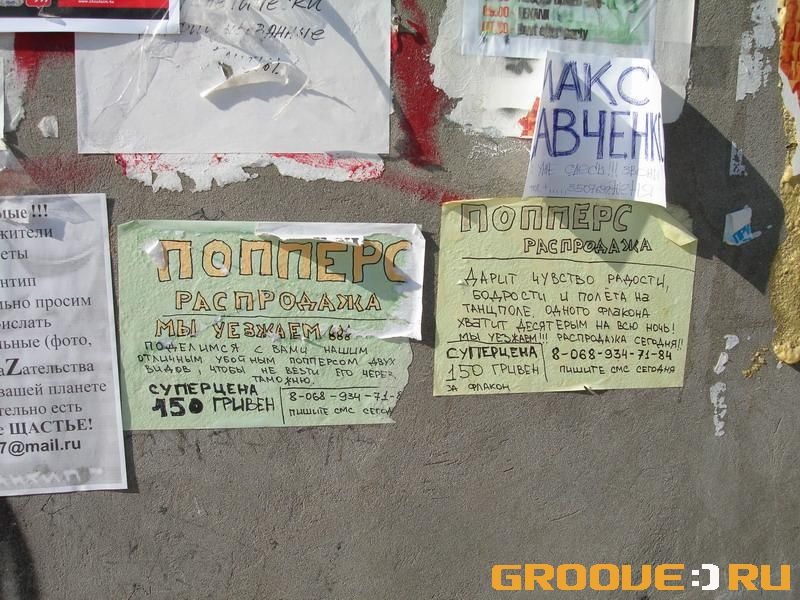 www.xlsalam.ru
вызванные
05:00
МАКС
АВЧЕНК
мые !!!
жители
еты
нтип
льно просим
ислать
льные (фото,
аZательства
вашей планете
тельно есть
е ЩАСТЬЕ!
7@mail.ru
ПОППЕРС
РАСПРОДАЖА
МЫ УЕЗЖАЕМ !!!
ПОДЕЛИМСЯ С ВАМИ НАШИМ
ОТЛИЧНЫМ УБОЙНЫМ ПОППЕРСОМ ДВУХ
ВИДОВ, ЧТОБЫ НЕ ВЕЗТИ ЕГО ЧЕРЕЗ
ТАМОЖНЮ.
СУПЕРЦЕНА
150 ГРИВЕН
8-068-934-71-8
пишите смс сегод
ПОППЕРС
РАСПРОДАЖА
ДАРИТ ЧУВСТВО РАДОСТИ,
БОДРОСТИ И ПОЛЁТА НА
ТАНЦПОЛЕ. ОДНОГО ФЛАКОНА
ХВАТИТ ДЕСЯТЕРЫМ НА ВСЮ НОЧЬ!
МЫ УЕЗЖАЕМ!!! РАСПРОДАЖА СЕГОДНЯ!!
СУПЕРЦЕНА
150 ГРИВЕН
ЗА ФЛАКОН
8-068-934-71-84
пишите смс сегодня
GROOVE:)RU